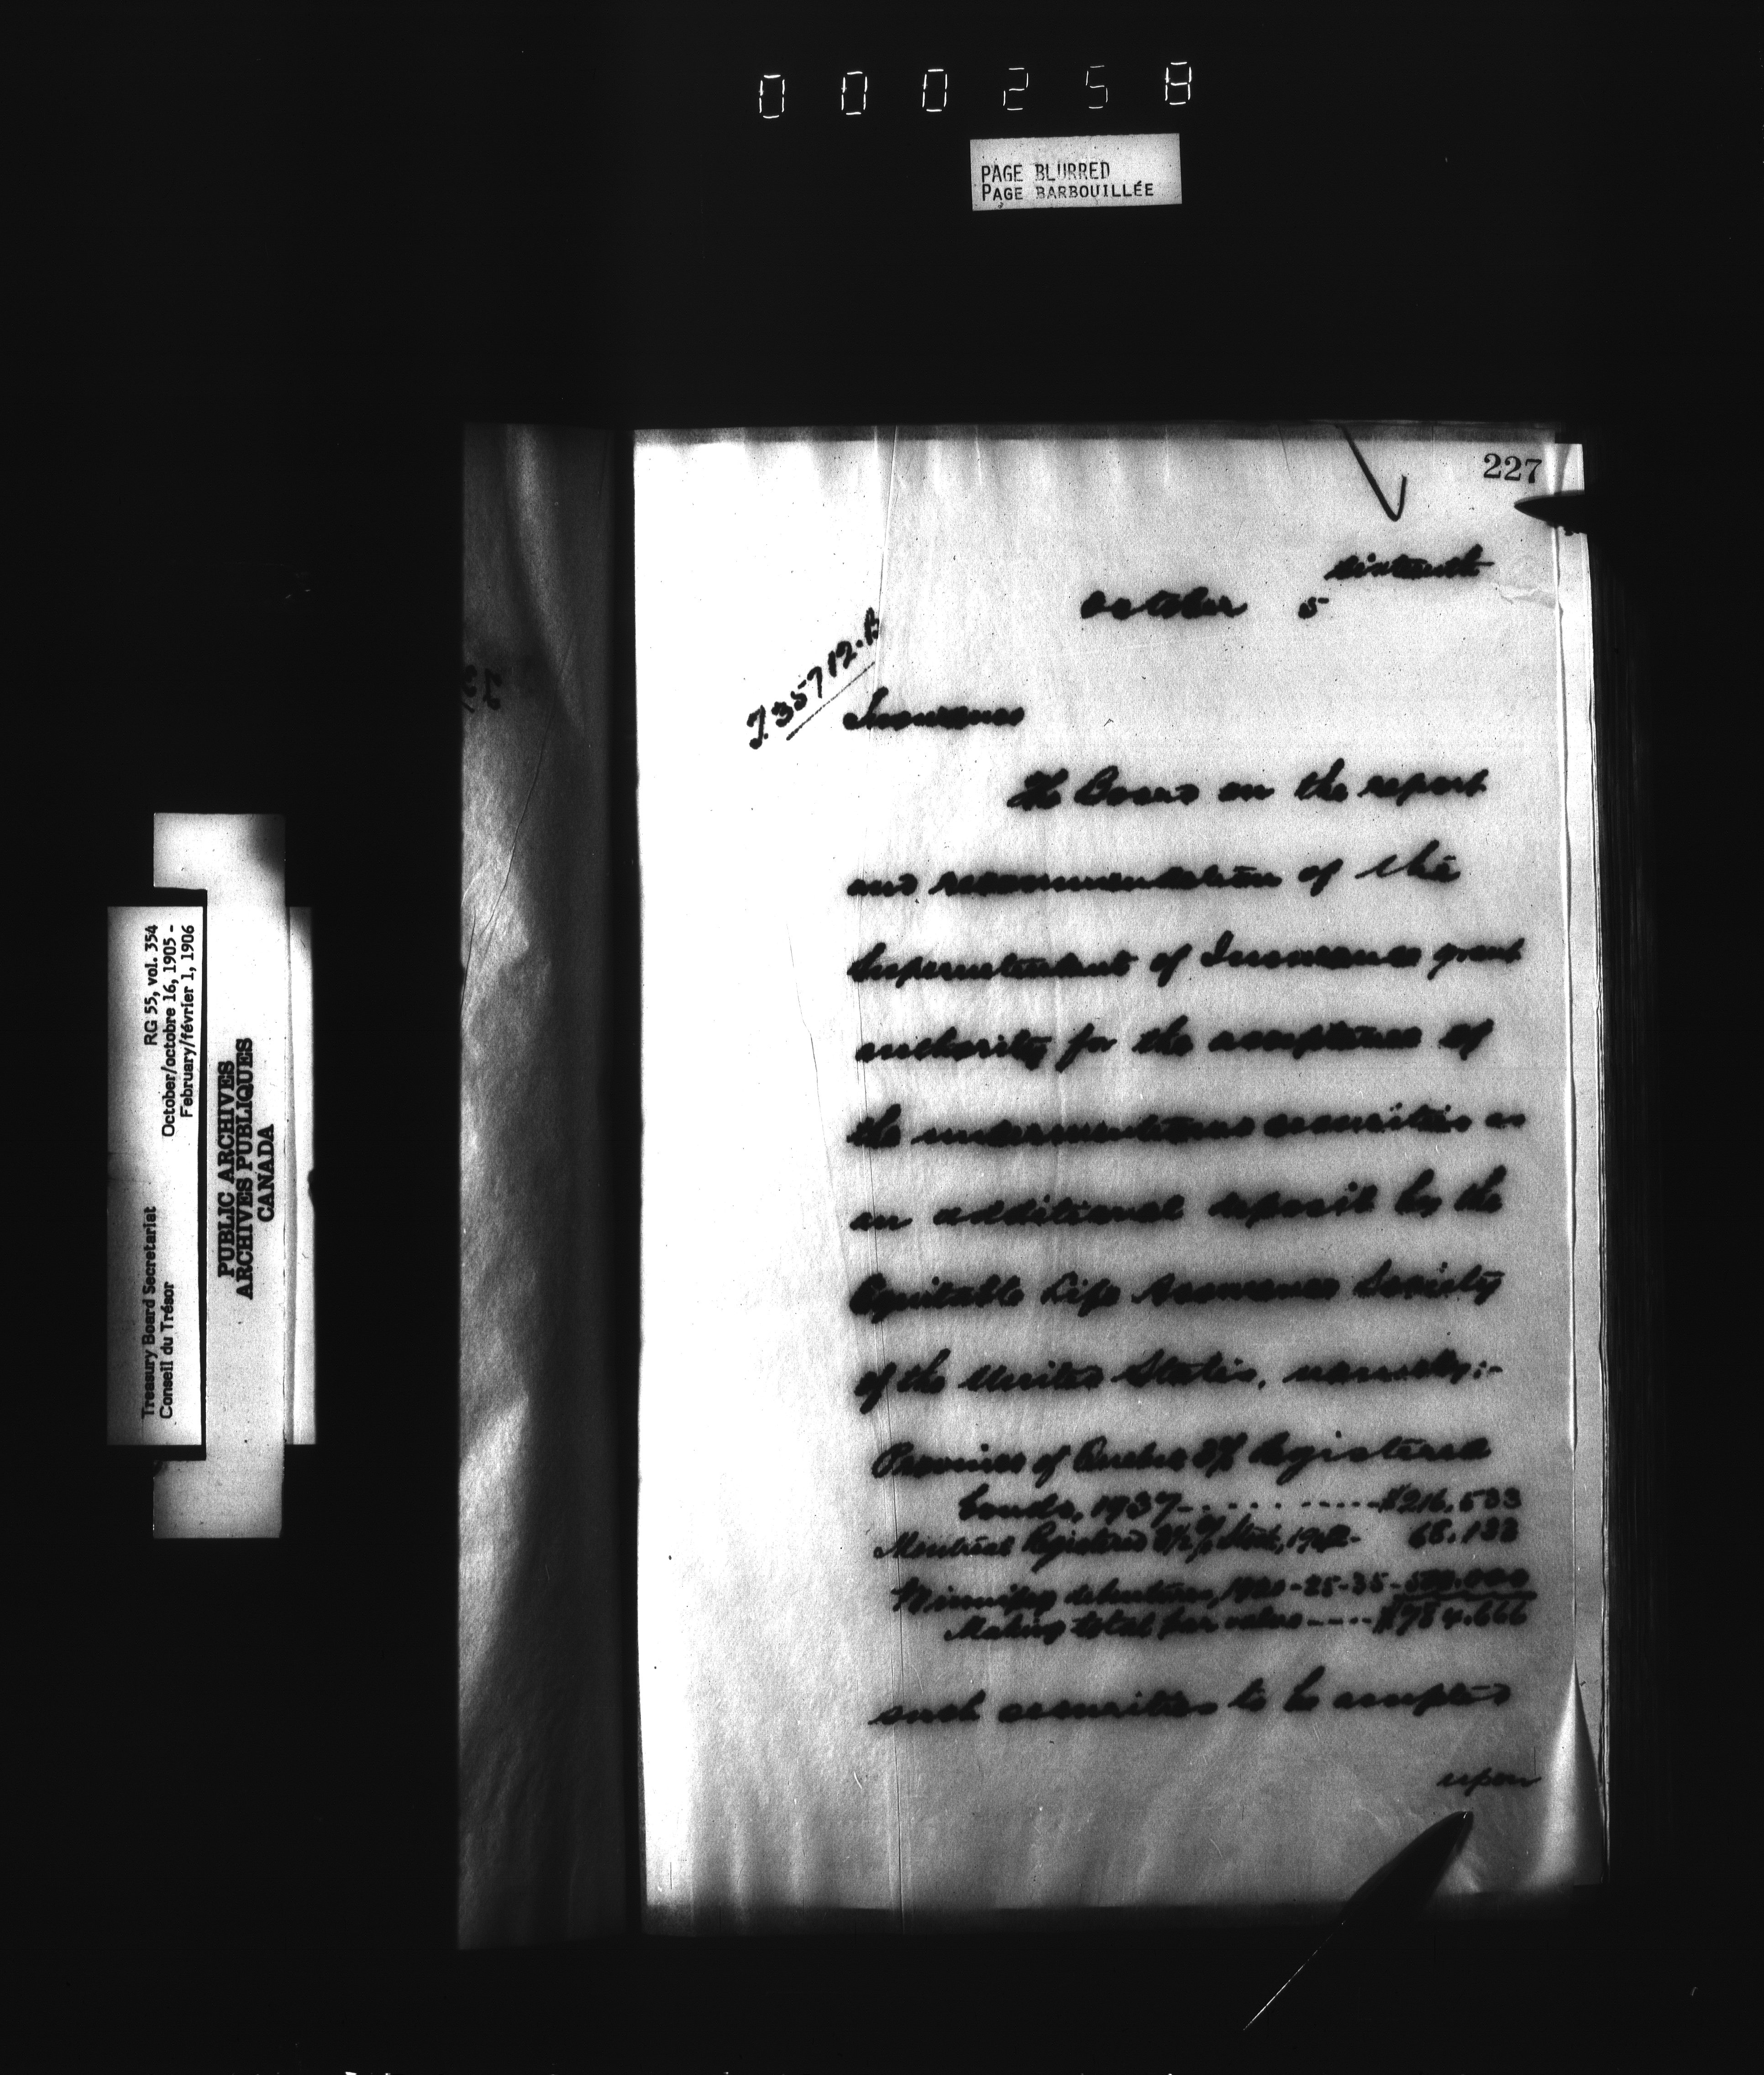 0 0 0 2 5 8
PAGE BLURRED
PAGE BARBOUILLÉE
227
sixteenth
October 5
T.35712.B
Insurance
The Board on the report
and recommendation of the
Superintendent of Insurance grant
authority for the acceptance of
the undermentioned securities as
an additional deposit by the
Equitable Life Assurance Society
of the United States, namely:-
Province of Quebec 3% Registered
bonds, 1937 - - - - - - - - $216.533
Montreal Registered 3½% Stock, 1942- 68.133
Winnipeg debentures, 1920-25-35-500.000
Making total par value ---- $784.666
such securities to be accepted
upon
Treasury Board Secretariat RG 55, vol. 354
Conseil du Trésor October/octobre 16, 1905 -
February/février 1, 1906
PUBLIC ARCHIVES
ARCHIVES PUBLIQUES
CANADA